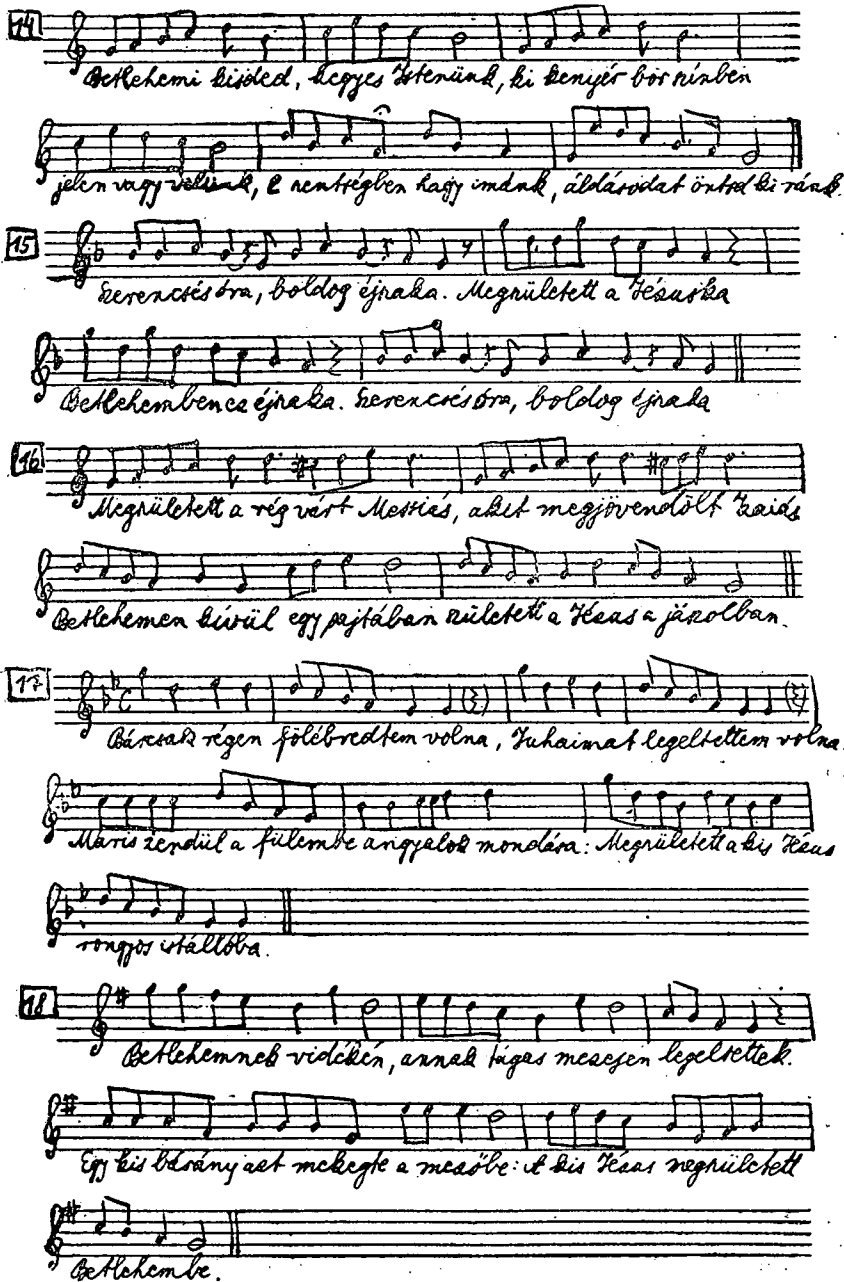 14
Betlehemi kisded, kegyes Istenünk, ki kenyér bor színben
jelen vagy velünk, e szentségben hagy imánk, áldásodat öntsd ki ránk.
15
Szerencsés óra, boldog éjszaka. Megszületett a Jézuska
Betlehemben ez éjszaka. Szerencsés óra, boldog éjszaka
16
Megszületett a rég várt Messiás, akit megjövendölt Izaiás
Betlehemen kívül egy pajtában született a Jézus a jászolban.
17
Bárcsak régen fölébredtem volna, Juhaimat legeltettem volna.
Máris zendül a fülembe angyalok mondása: Megszületett a kis Jézus
rongyos istállóba.
18
Betlehemnek vidékén, annak tágas mezején legeltettek.
Egy kis bárány azt mekegte a mezőbe: A kis Jézus megszületett
Betlehembe.